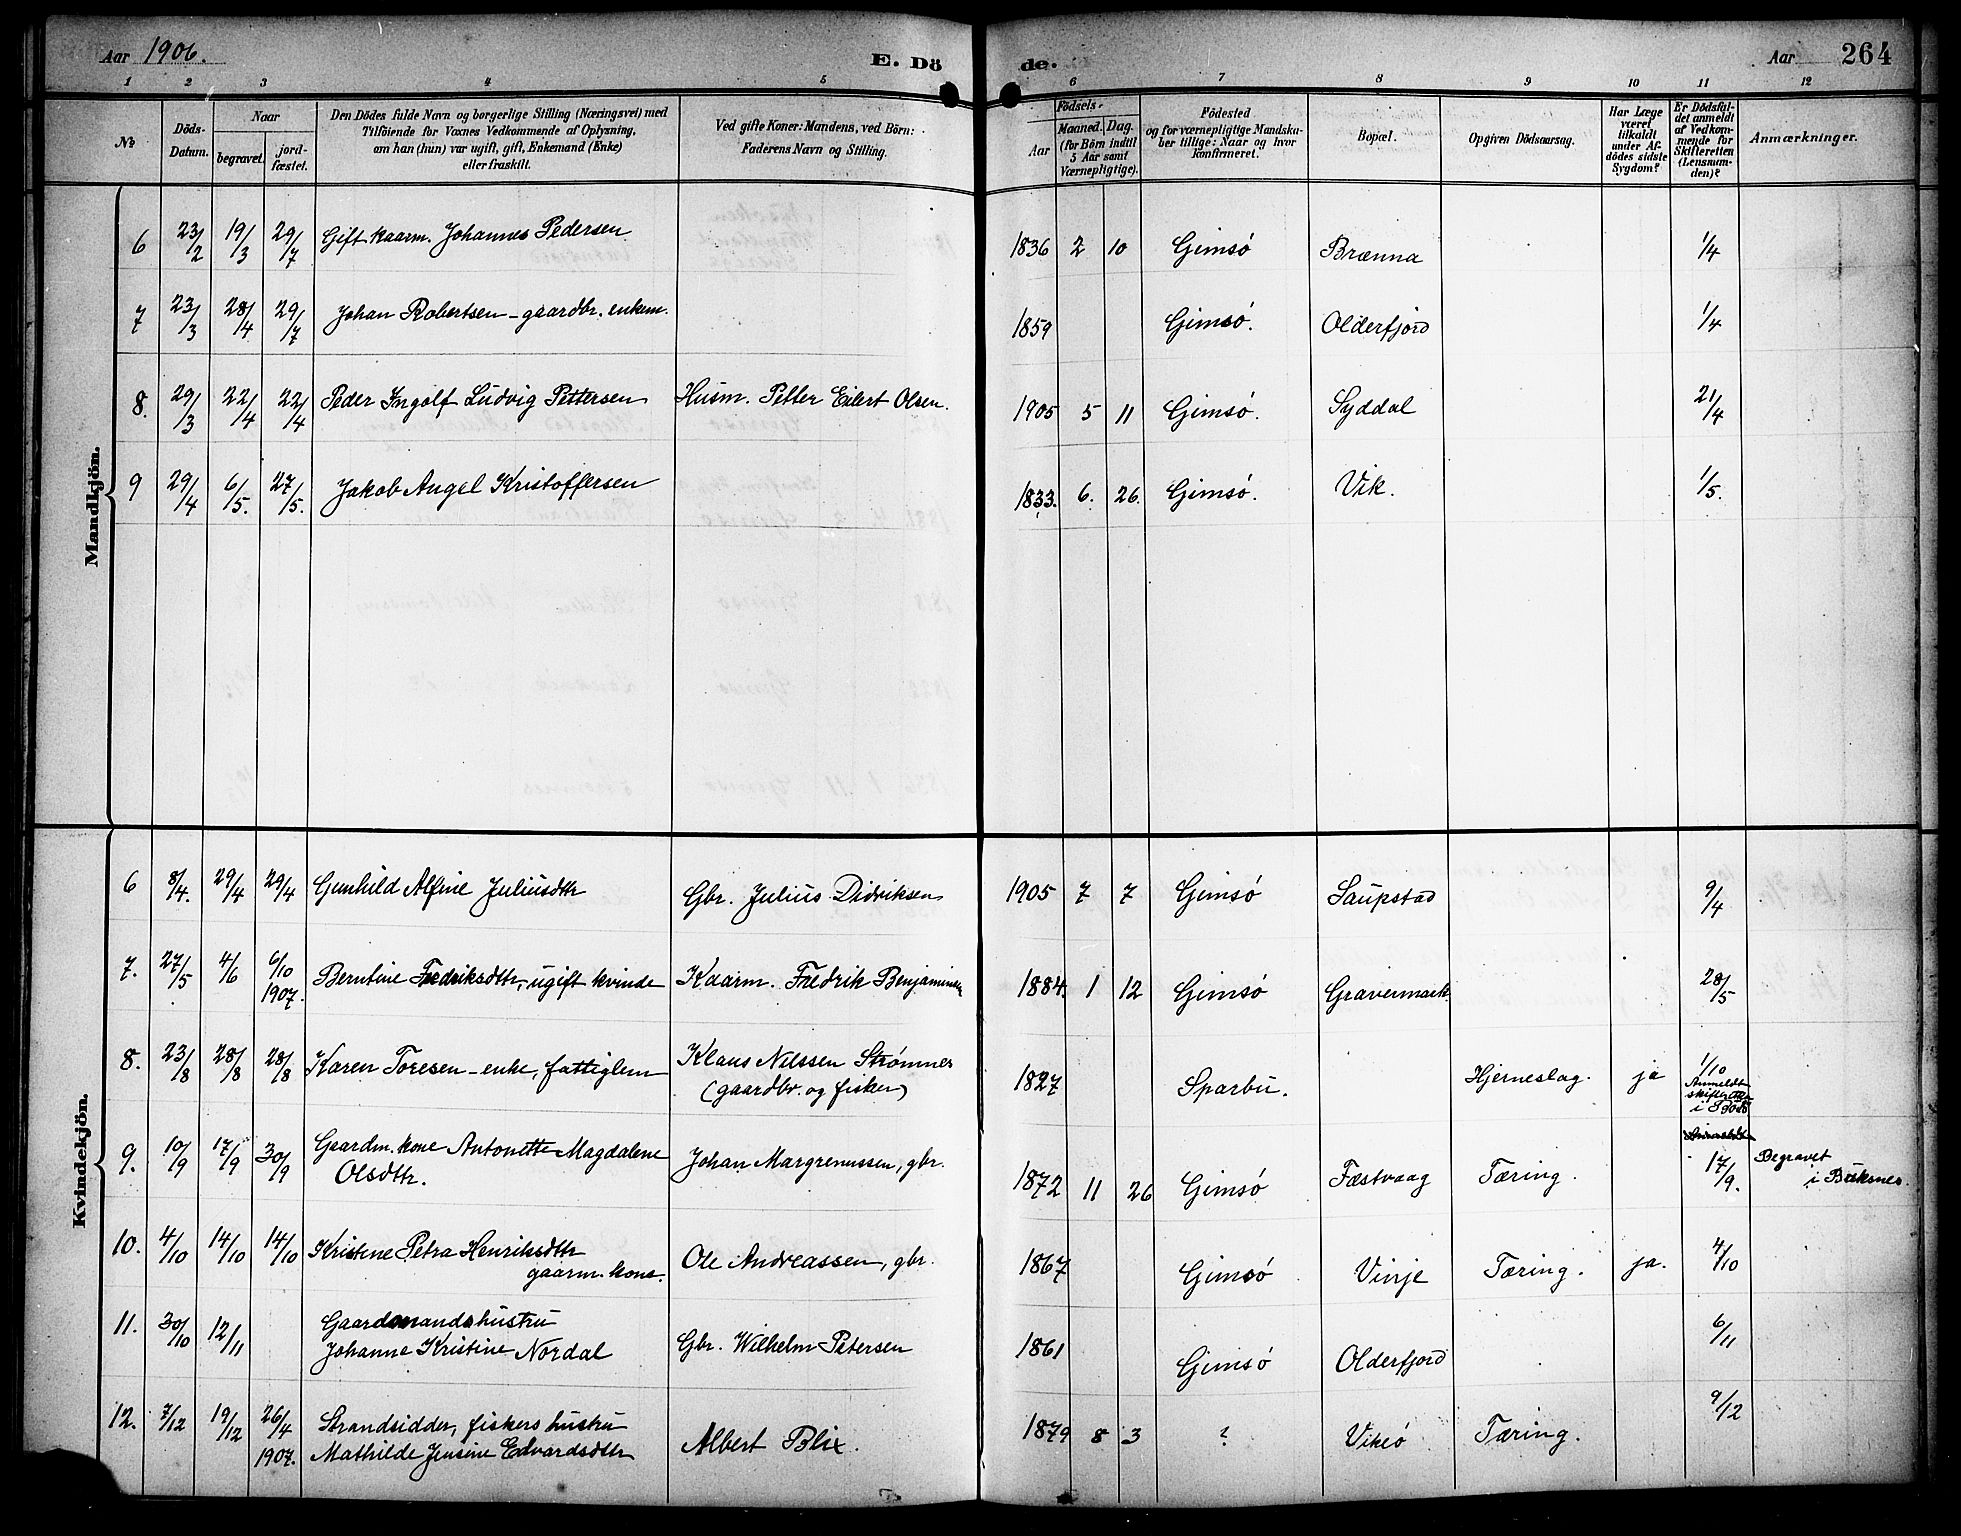 Aar 1906. E. Dö de. Aar 264
1 2 3 4 5 6 7 8 9 10 11 12
№
Döds-Datum.
Naar
begravet. jordfæstet.
Den Dödes fulde Navn og borgerlige Stilling (Næringsvei) med
Tilföiende for Voxnes Vedkommende af Oplysning,
om han (hun) var ugift, gift, Enkemand (Enke)
eller fraskilt.
Ved gifte Koner: Mandens, ved Börn:
Faderens Navn og Stilling.
Födsels-
Aar Maaned. Dag.
(for Börn indtil
5 Aar samt
Værnepligtige).
Födested
og for værnepligtige Mandskaber tillige: Naar og hvor
konfirmeret.
Bopæl.
Opgiven Dödsaarsag.
Har Læge
været
tilkaldt
under Afdödes sidste
Sygdom?
Er Dödsfaldet anmeldt
af Vedkommende for
Skifteretten
(Lensmanden)?
Anmærkninger.
Mandkjön.
6 23/2 19/3 29/7 Gift kaarm. Johannes Pedersen 1836 2 10 Gimsö Brænna 1/4
7 23/3 28/4 29/7 Johan Robertsen - gaardbr. enkem. 1859 Gimsö. Olderfjord 1/4
8. 29/3 22/4 22/4 Peder Ingolf Ludvig Pettersen Husm. Petter Eilert Olsen. 1905 5 11 Gimsö. Syddal 21/4
9 29/4 6/5. 27/5. Jakob Angel Kristoffersen 1833. 6. 26. Gimsö. Vik. 1/5.
Kvindekjön.
6 8/4. 29/4 29/4 Gunhild Alfine Juliusdtr Gbr. Julius Didriksen 1905 7 7 Gimsö Saupstad 9/4
7. 27/5 4/6 6/10 1907. Berntine Fredriksdtr, ugift kvinde Kaarm. Fredrik Benjaminsen 1884 1 12 Gimsö Gravermark 28/5
8. 23/8 28/8 28/8 Karen Toresen - enke, fattiglem Klaus Nilssen Strømnes
(gaardbr. og fisker) 1827 Sparbu. Hjerneslag. ja 1/10
Anmeldt
skifteretten
i Bodö
9. 10/9 17/9 30/9 Gaardm. kone Antonette Magdalene
Olsdtr. Johan Margrenussen, gbr. 1872 11 26 Gimsö Fæstvaag Tæring. 17/9. Begravet
i Buksnes.
10. 4/10 14/10 14/10 Kristene Petra Henriksdtr
gaarm. kone. Ole Andreassen, gbr. 1867 Gimsö Vinje Tæring. ja. 4/10
11. 30/10 12/11 Gaardmandshustru
Johanna Kristine Nordal Gbr. Wilhelm Petersen 1861 Gimsö Olderfjord 6/11
12. 7/12 19/12 26/4 1907. Strandsidder, fiskers hustru
Mathilde Jensine Edvardsdtr Albert Blix. 1879 8 3 ? Vikeö Tæring. 9/12